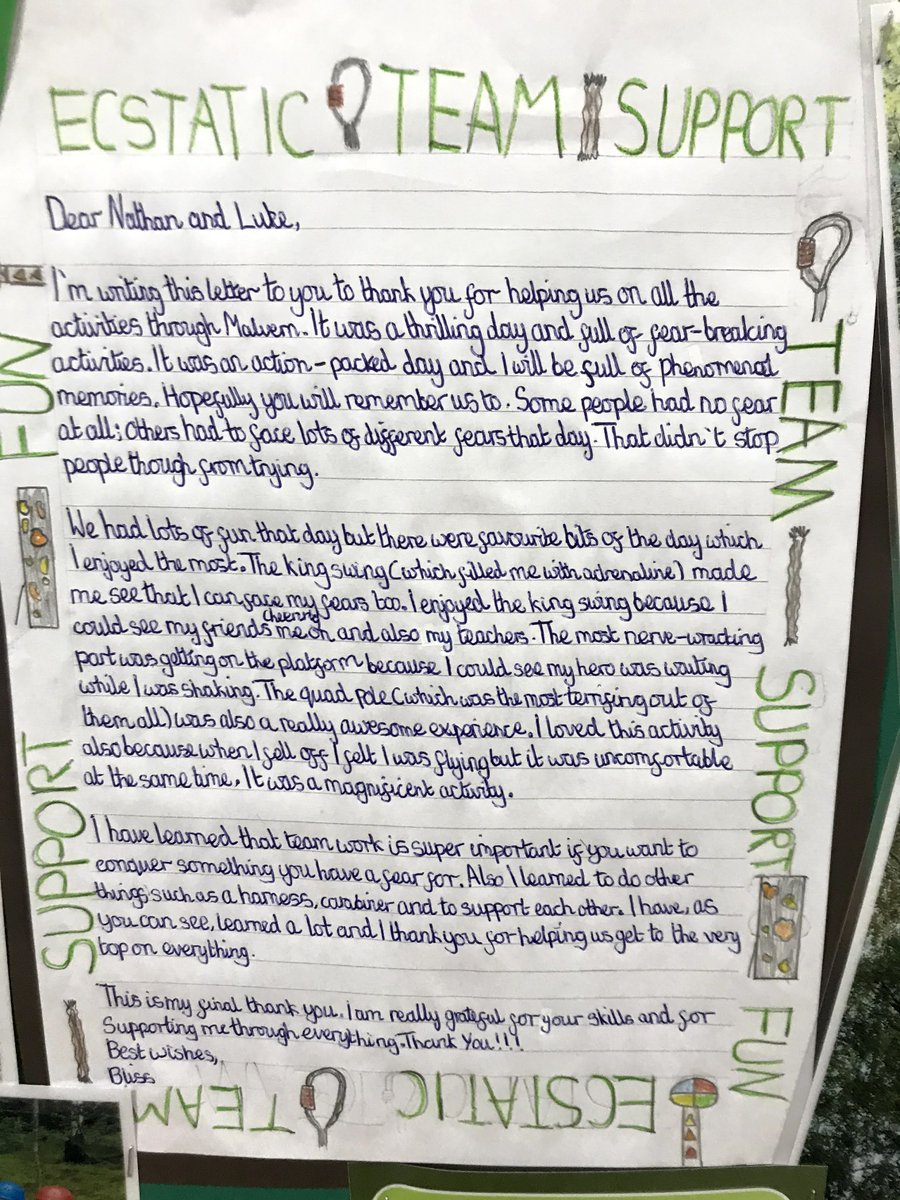 ECSTATIC TEAM SUPPORT
Dear Nathan and Luke,
I'm writing this letter to you to thank you for helping us on all the
activities through Malvern. It was a thrilling day and full of fear-breaking
activities. It was an action-packed day and I will be full of phenomenal
memories. Hopefully you will remember us to. Some people had no fear
at all; others had to face lots of different fears that day. That didn't stop
people though from trying.
We had lots of fun that day but there were favourite bits of the day which
I enjoyed the most. The king swing (which filled me with adrenaline) made
me see that I can face my fears too. I enjoyed the king swing because I
could see my friends cheering me on and also my teachers. The most nerve-wracking
part was getting on the platform because I could see my hero was waiting
while I was shaking. The quad pole (which was the most terrifing out of
them all) was also a really awesome experience. I loved this activity
also because when I fell off I felt I was flying but it was uncomfortable
at the same time. It was a magnificent activity.
I have learned that team work is super important if you want to
conquer something you have a fear for. Also I learned to do other
things such as a harness, carabiner and to support each other. I have, as
you can see, learned a lot and I thank you for helping us get to the very
top on everything.
This is my final thank you. I am really grateful for your skills and for
Supporting me through everything. Thank You!!!
Best wishes,
Bliss
TEAM
SUPPORT
FUN
ECSTATIC
TEAM
SUPPORT
FUN